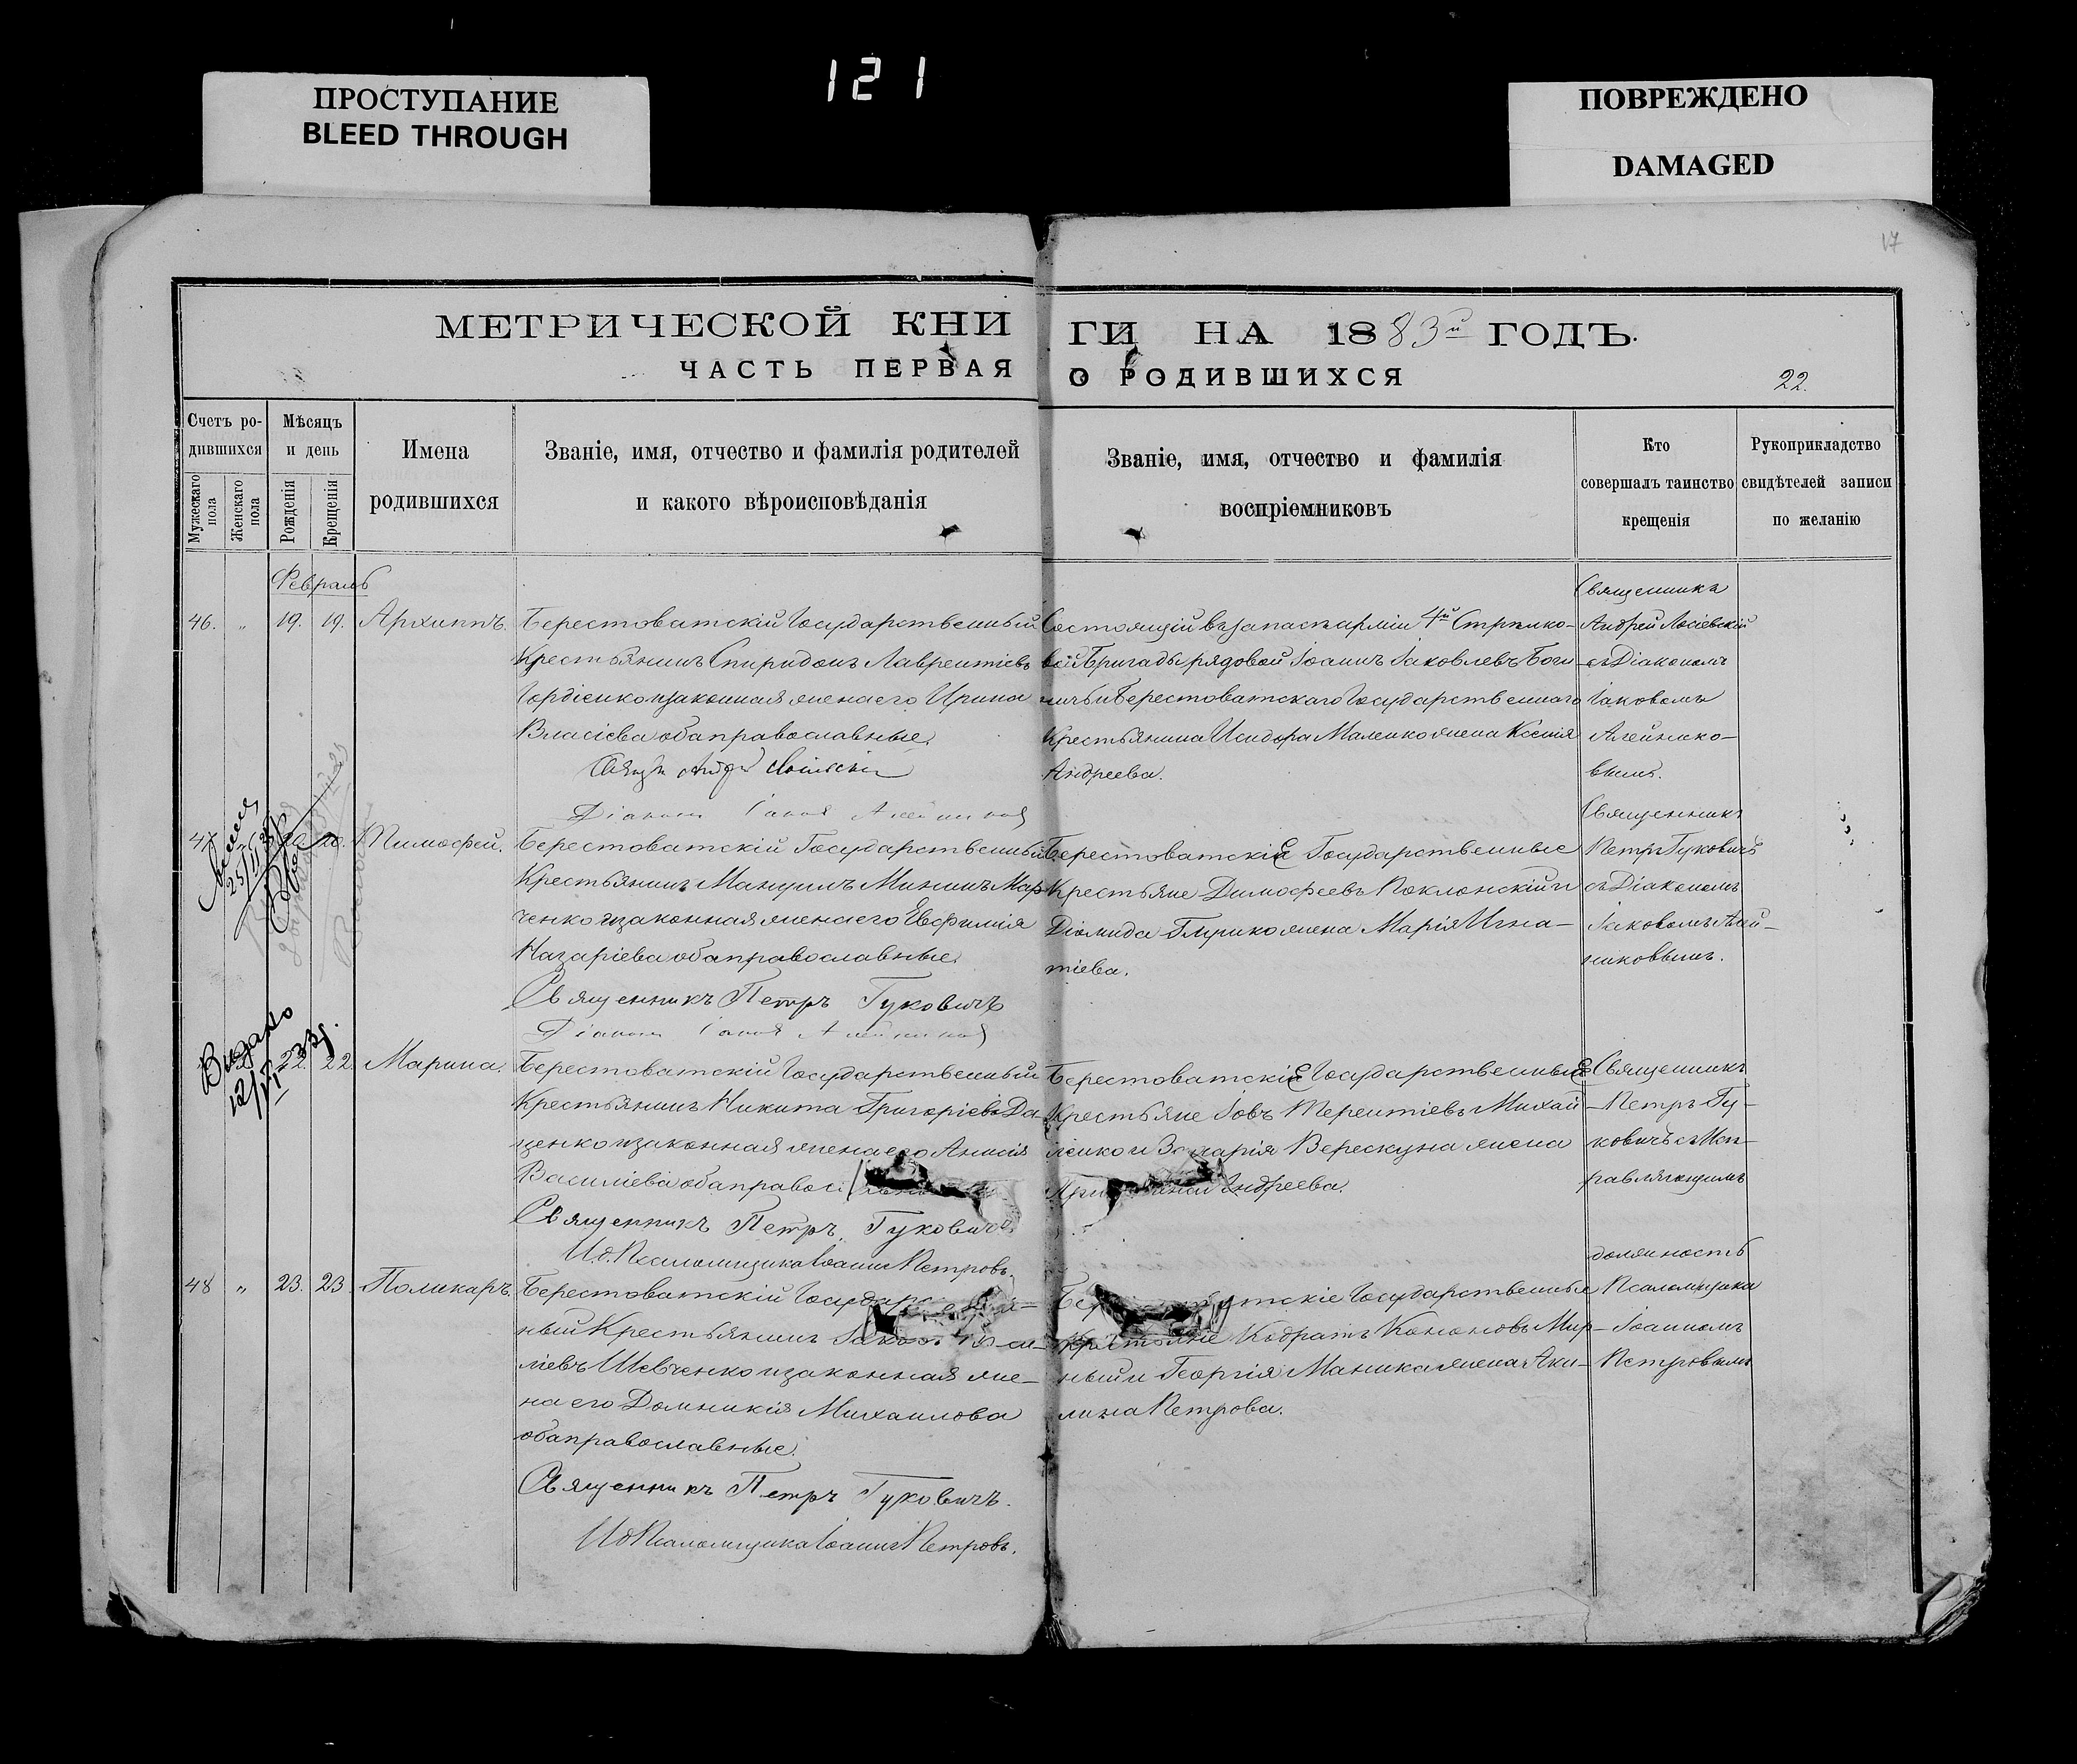 121
ПРОСТУПАНИЕ
BLEED THROUGH
ПОВРЕЖДЕНО
DAMAGED
17
МЕТРИЧЕСКОЙ КНИ
ГИ НА 1883й ГОДЪ.
ЧАСТЬ ПЕРВАЯ
О РОДИВШИХСЯ
22.
Счетъ ро-
дившихся
Мужескаго пола
Женскаго пола
Мѣсяцъ
и день
Рожденія
Крещенія
Имена
родившихся
Званіе, имя, отчество и фамилія родителей
и какого вѣроисповѣданія
Званіе, имя, отчество и фамилія
воспріемниковъ
Кто
совершалъ таинство
крещенія
Рукоприкладство
свидѣтелей записи
по желанію
Февраль
46. " 19. 19. Архиппъ.
Берестоватскій Государственный
Крестьянинъ Спиридонъ Лаврентіевъ
Гордіенко и законная жена его Ирина
Власіева оба православные.
Состоящій въ запасѣ арміи 4й Стрѣлко-
вой Бригады рядовой Іоаннъ Іаковлевъ
и Берестоватскаго Государственнаго
Крестьянина Исидора Маленко жена Ксенія
Андреева.
Священникъ
Андрей Лосіевскій
съ Діакономъ
Іаковомъ
Алейнико-
вымъ.
47 Тимоѳей.
Берестоватскій Государственный
Крестьянинъ Мануилъ Мининъ Мар-
ченко и законная жена его Евфимія
Назаріева оба православные.
Священникъ Петръ Гуковичъ
Берестоватскіе Государственные
Крестьяне Димофеевъ Поклонскій и
Діомида жена Марія Игна-
тіева.
Священникъ
Петръ Гуковичъ
съ Діакономъ
Іаковомъ Алей-
никовымъ.
Видано
12/VI 33г.
22. 22. Марина.
Берестоватскій Государственный
Крестьянинъ Никита Григоріевъ Да-
ценко и законная жена его Анисія
Василіева оба правос
Священникъ Петръ Гуковичъ
И.д. Псаломщика Іоаннъ Петровъ.
Берестоватскіе Государственные
Крестьяне Іовъ Терентіевъ Михай-
ленко и Верескуна жена
Андреева.
Священникъ
Петръ Гу-
ковичъ съ Исп-
равляющимъ
должность
Псаломщика
Іоанномъ
Петровымъ
48 " 23. 23. Поликарпъ.
Берестоватскій Государ
ный Крестьянинъ Іаковъ Васи-
ліевъ Шевченко и законная же-
на его Домникія Михаилова
оба православные.
Священникъ Петръ Гуковичъ.
И.д. Псаломщика Іоаннъ Петровъ.
Государственные
Крестьяне Кодратъ Кононовъ Мир-
ный и Георгія Маника жена Аки-
лина Петрова.